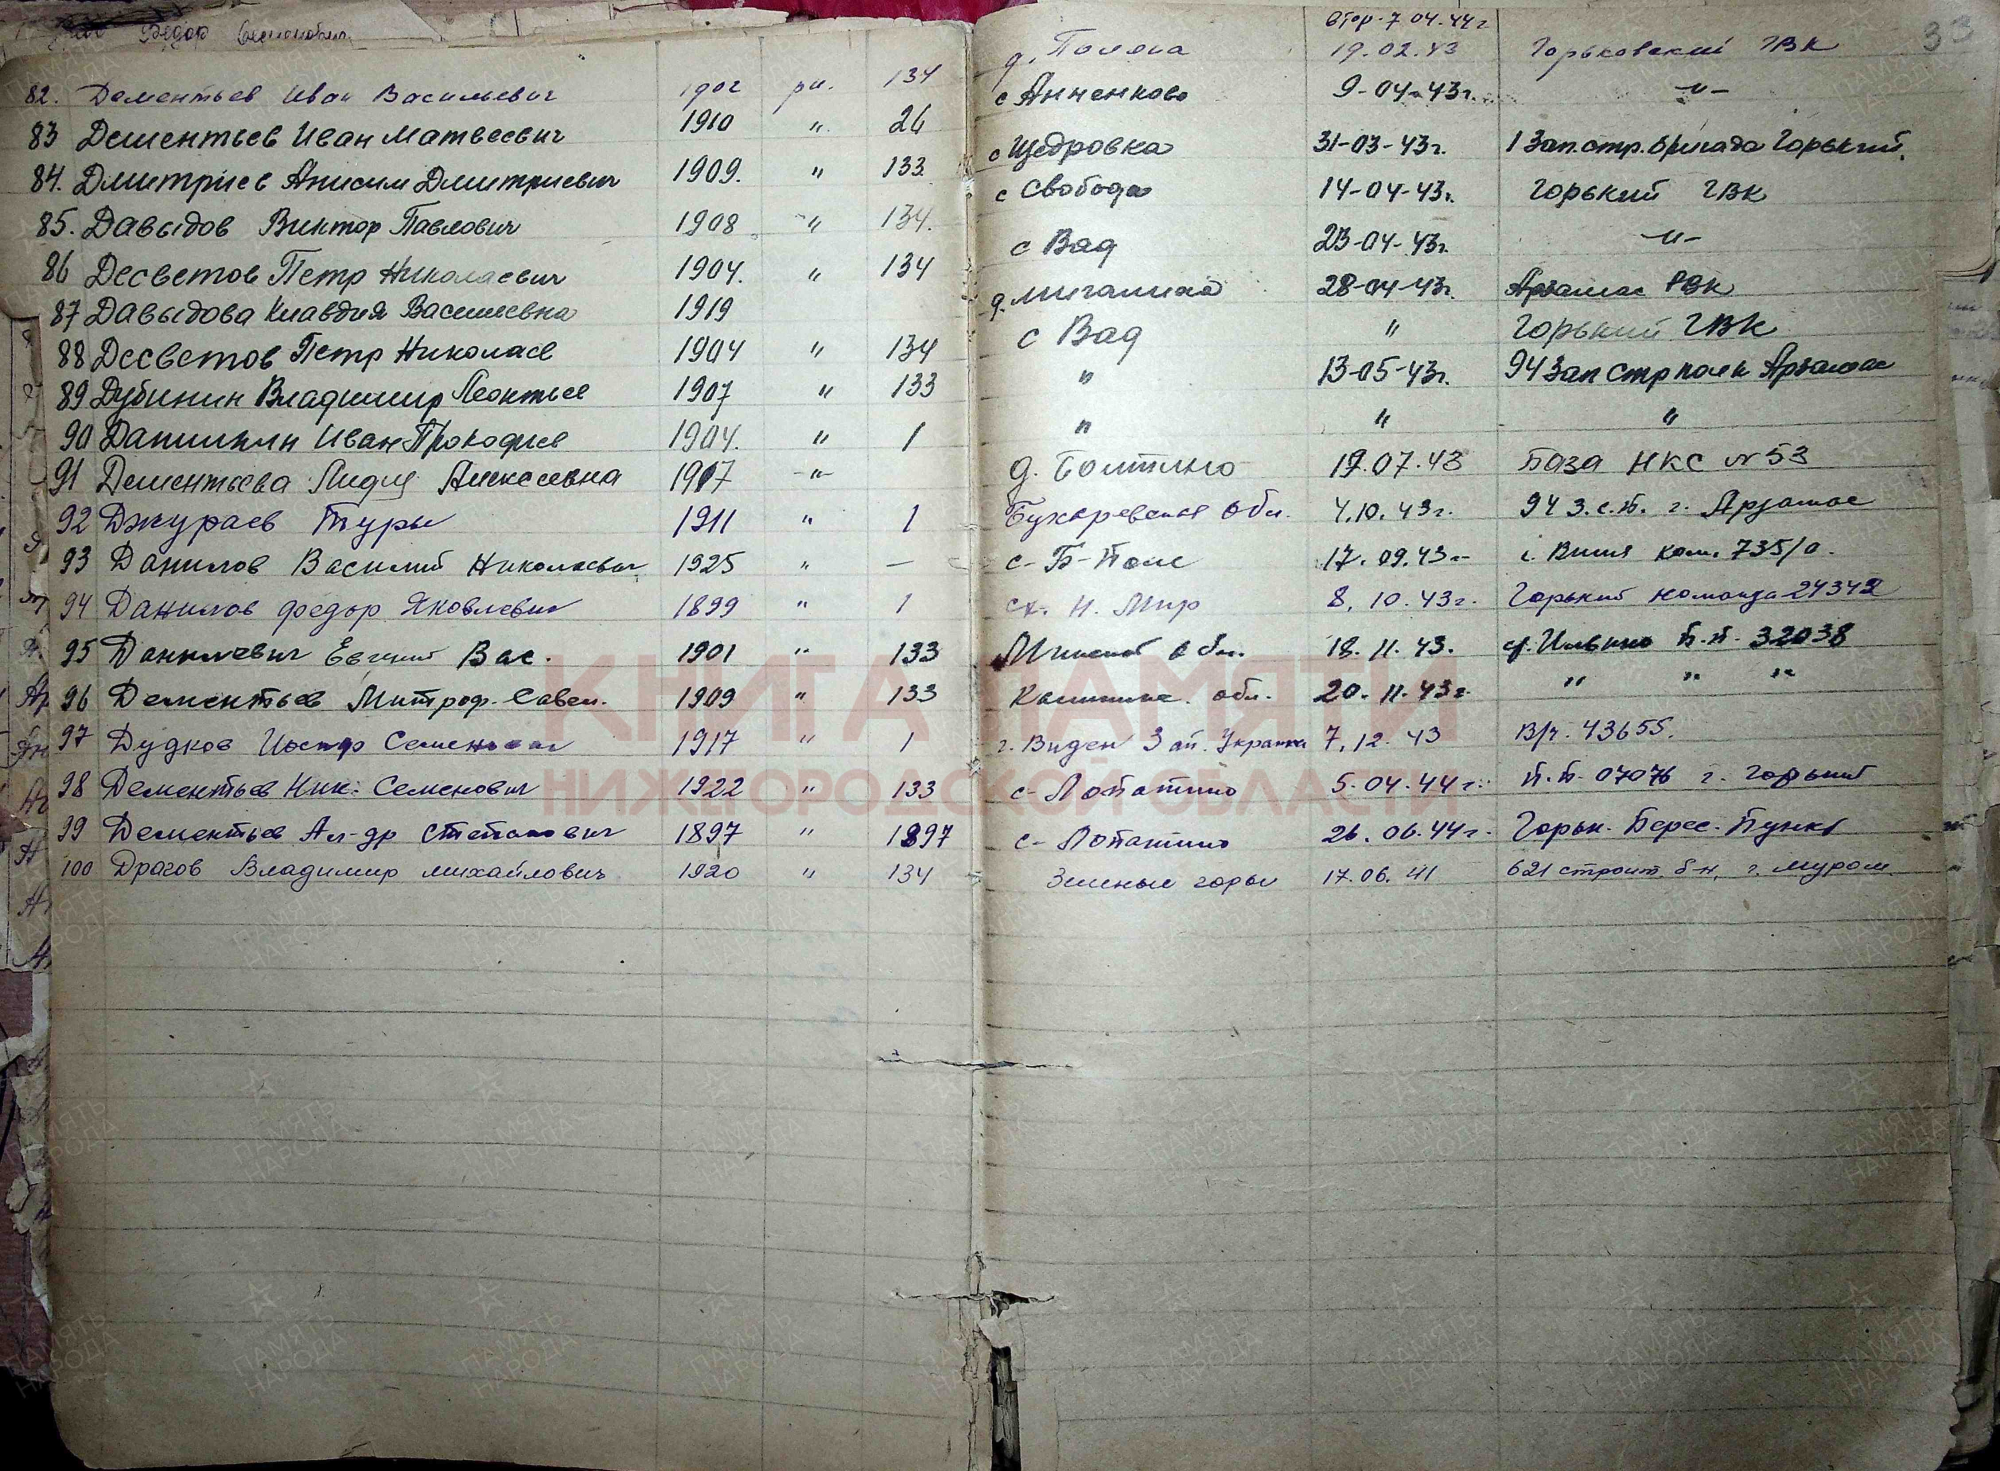 Федор Семенович
втор. 7 04.44г
33
82. Дементьев Иван Васильевич 1902 ря. 134 д. Поляна 19.02.43 Горьковский ГВК
83 Дементьев Иван Матвеевич 1910 " 26 с Анненково 9-04-43г. -"-
84. Дмитриев Анисим Дмитриевич 1909. " 133 с Щедровка 31-03-43г. 1 Зап. стр. бригада Горький.
85. Давыдов Виктор Павлович 1908 " 134. с Свобода 14-04-43г. Горький ГВК
86 Десветов Петр Николаевич 1904. " 134 с Вад 23-04-43г. -"-
87 Давыдова Клавдия Васильевна 1919 д. 28-04-43г. Арзамас РВК
88 Десветов Петр Николаев 1904 " 134 с Вад " Горький ГВК
89 Дубинин Владимир Леонтьев 1907 " 133 " 13-05-43г. 94 Зап стр полк Арзамас
90 Данилкин Иван Прокофьев 1904. " 1 " " "
91 Дементьева Лидия Алексеевна 1917 -"- д. Болтино 19.07.43 База НКС № 53
92 Джураев Туры 1911 " 1 обл. 4.10.43г. 94 З.с.п. г. Арзамас
93 Данилов Василий Николаевич 1925 " — с- Б-Поле 17.09.43г- ком. 735/а.
94 Данилов Федор Яковлевич 1899 " 1 Н. Мир 8.10.43г. Горький команда 24342
95 Данилевич Евгений Вас. 1901 " 133 Минской обл. 18.11.43. ст. Ильино П.п. 32038
96 Дементьев Митроф. Савел. 1909 " 133 обл. 20.11.43г. " " "
97 Дудков Иосиф Семенович 1917 " 1 г. Виден Зап. Украина 7.12.43 В/ч. 43655.
98 Дементьев Ник. Семенович 1922 " 133 с- Лопатино 5.04.44г. П.п. 07076 г. Горький
99 Дементьев Ал-др Степанович 1897 " 1897 с- Лопатино 26.06.44г. Горьк. Перес. Пункт
100 Драгов Владимир Михайлович 1920 " 134 Зеленые горы 17.06.41 621 строит. б-н, г. Муром.
КНИГА ПАМЯТИ
НИЖГОРОДСКОЙ ОБЛАСТИ
ПАМЯТЬ НАРОДА